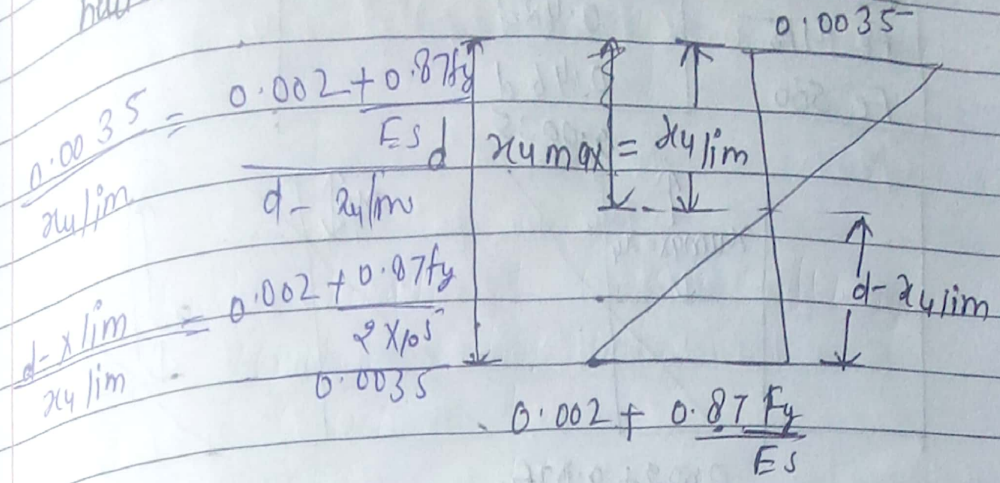 0.0035
0.0035 / xulim = 0.002 + 0.87fy / Es / d - xulim
d
xumax = xulim
d - xulim
d - xlim / xulim = 0.002 + 0.87fy / 2x10⁵ / 0.0035
0.002 + 0.87 Fy / Es